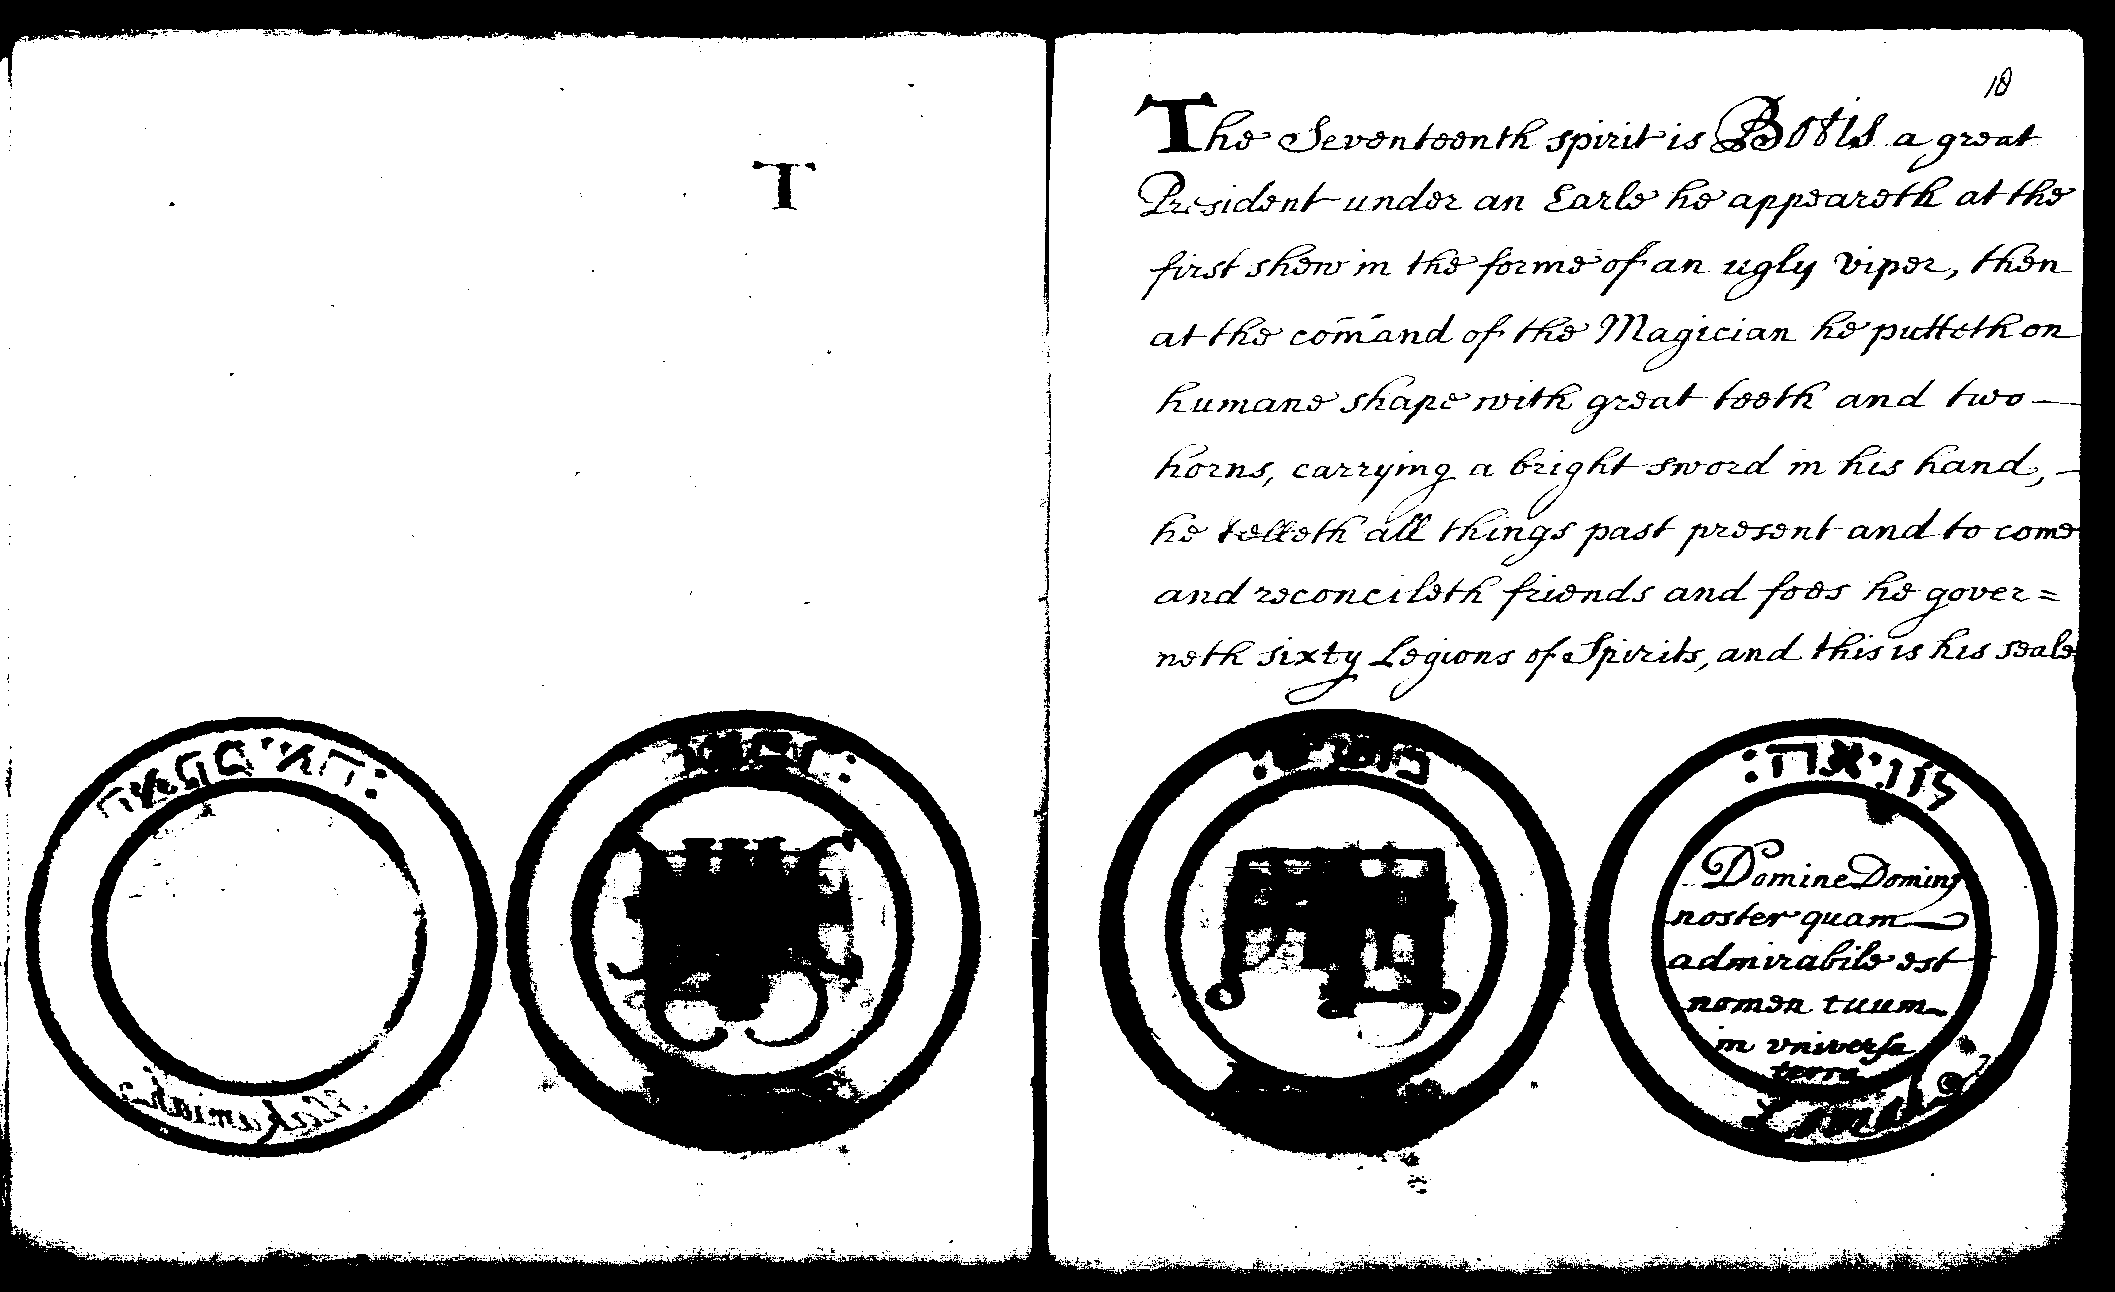 T
18
The Seventeenth spirit is Botis a great
President under an Earle he appeareth at the
first shew in the forme of an ugly viper, then
at the com̄and of the Magician he putteth on
humane shape with great teeth and two—
horns, carrying a bright sword in his hand, –
he telleth all things past present and to come
and reconcileth friends and foes he gover=
neth sixty Legions of Spirits, and this is his seale
לוויאה:
Domine Dominus
noster quam
admirabile est
nomen tuum
in universa
terra